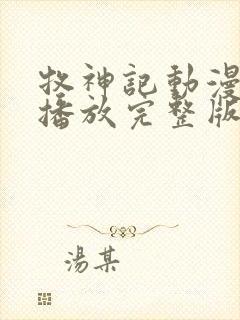 牧神記動漫
播放完整版
湯某